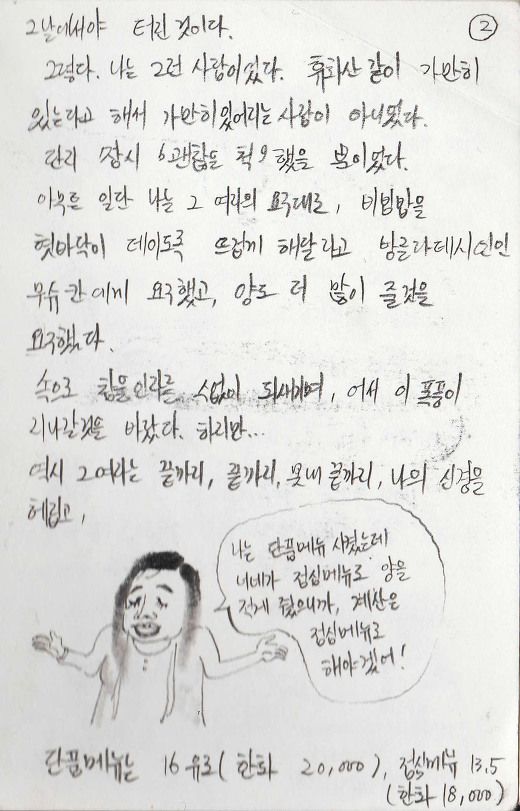 ②
그날에서야 터린 것이다.
그렇다. 나는 그런 사람이었다. 휴화산 같이 가만히
있는다고 해서 가만히있어리는 사람이 아니였다.
단리 잠시 쉬괜찮은 척 했을 뿐이였다.
아무튼 일단 나는 그 여자의 요구대로, 비빔밥을
혓바닥이 데이도록 뜨겁게 해달라고 방글라데시인인
무슈칸에게 요구했고, 양도 더 많이 줄것을
요구했다.
속으로 참을인자를 수없이 되새기며, 어서 이 폭풍이
지나갈것을 바랐다. 하지만...
역시 그여자는 끝까지, 끝까지, 못내 끝까지, 나의 신경을
헤집고,
나는 단품메뉴 시켰는데
너네가 점심메뉴로 양을
적게 줬으니까, 계산은
점심메뉴로
해야겠어!
단품메뉴는 16유로(한화 20,000), 점심메뉴 13.5
(한화 18,000)